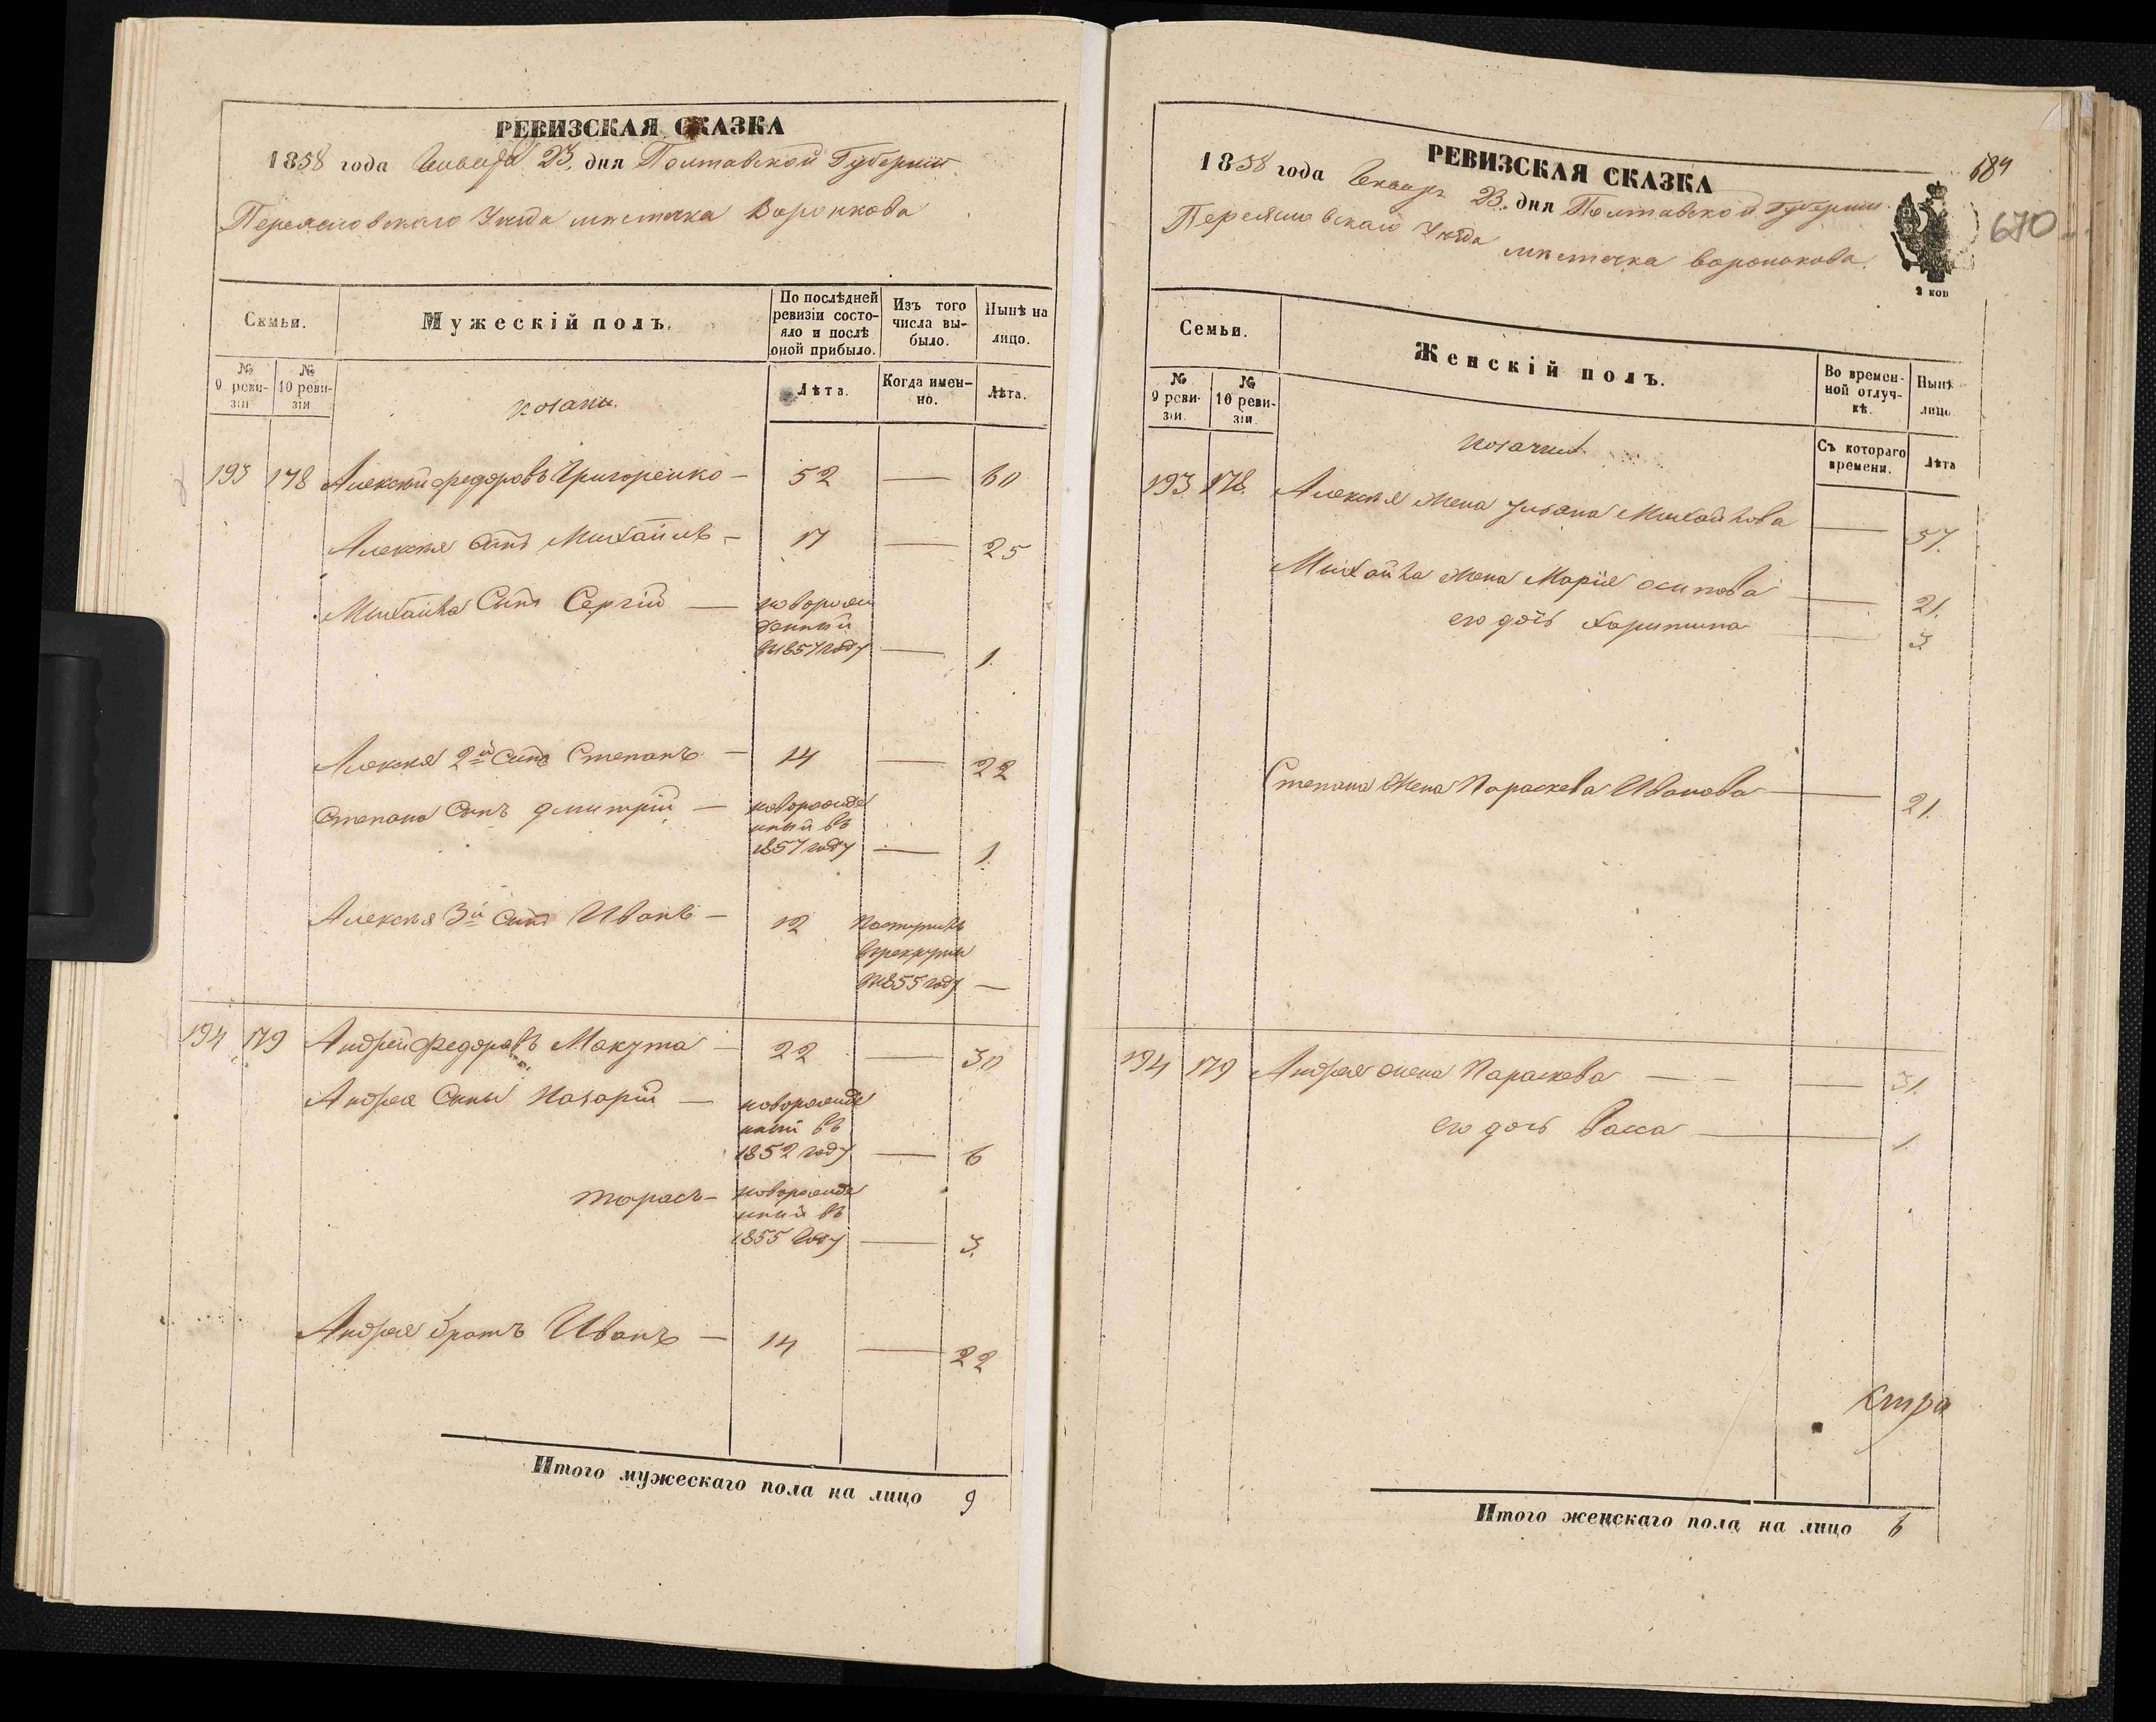 РЕВИЗСКАЯ СКАЗКА
1858 года Января 23. дня Полтавской Губернии
Переясловскаго Уѣзда мѣстечка Воронкова
Семьи.
Мужескій полъ.
По послѣдней ревизіи состояло и послѣ оной прибыло.
Изъ того числа выбыло.
Нынѣ на лицо.
№ 9 ревизіи
№ 10 ревизіи
козаки.
Лѣта.
Когда именно.
Лѣта.
193 178 Алексѣй Федоровъ Григоренко — 52 — 60
Алексѣя Сынъ Михайлъ — 17 — 25
Михайла Сынъ Сергій — новорожденный въ 1857 году — 1.
Алексѣя 2й Сынъ Степанъ — 14 — 22
Степана Сынъ Дмитрій — новорожденный въ 1857 году — 1.
Алексѣя 3й Сынъ Иванъ — 12 Поступилъ въ рекруты в 1855 году —
194 179 Андрей Федоровъ Макута — 22 — 30
Андрея Сыны Назарій — новорожденный въ 1852 году — 6
Тарасъ — новорожденный въ 1855 году — 3.
Андрея братъ Иванъ — 14 — 22
Итого мужескаго пола на лицо 9
684
670
РЕВИЗСКАЯ СКАЗКА
1858 года Январ 23. дня Полтавской Губернии
Переясловскаго Уѣзда мѣстечка воронкова.
2 коп
Семьи.
Женскій полъ.
Во временной отлучкѣ.
Нынѣ лицо
№ 9 ревизіи.
№ 10 ревизіи.
козачки
Съ котораго времени.
Лѣта
193. 178. Алексѣя жена Ульяна Михайлова — 57.
Михайла жена Марія осипова — 21.
его дочь Харитина — 3.
Степана жена Параскева Иванова — 21.
194 179 Андрея жена Параскева — — — 31.
его дочь Васса — 1.
Итого женскаго пола на лицо 6